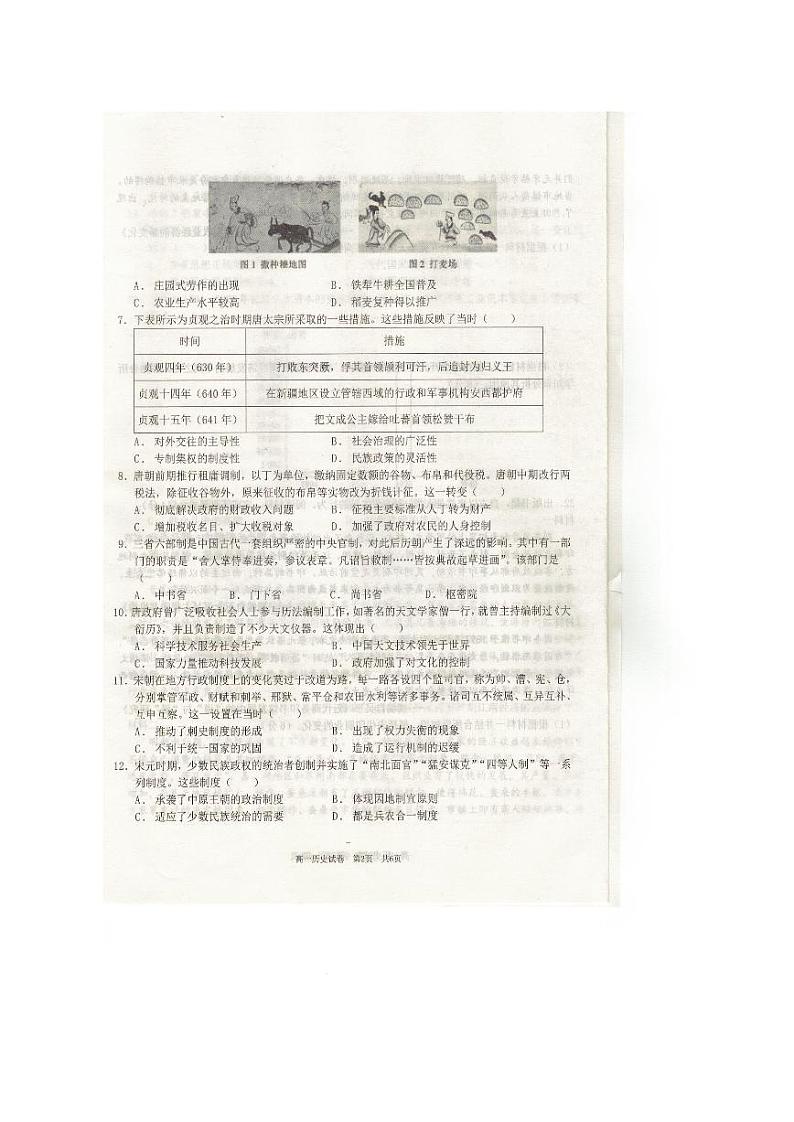 图1 撒种耱地图 图2 打麦场
A. 庄园式劳作的出现 B. 铁犁牛耕全国普及
C. 农业生产水平较高 D. 稻麦复种得以推广
7. 下表所示为贞观之治时期唐太宗所采取的一些措施。这些措施反映了当时( )
时间 措施
贞观四年(630年) 打败东突厥,俘其首领颉利可汗,后追封为归义王
贞观十四年(640年) 在新疆地区设立管辖西域的行政和军事机构安西都护府
贞观十五年(641年) 把文成公主嫁给吐蕃首领松赞干布
A. 对外交往的主导性 B. 社会治理的广泛性
C. 专制集权的制度性 D. 民族政策的灵活性
8. 唐朝前期推行租庸调制,以丁为单位,缴纳固定数额的谷物、布帛和代役税。唐朝中期改行两
税法,除征收谷物外,原来征收的布帛等实物改为折钱计征。这一转变( )
A. 彻底解决政府的财政收入问题 B. 征税主要标准从人丁转为财产
C. 增加税收名目、扩大收税对象 D. 加强了政府对农民的人身控制
9. 三省六部制是中国古代一套组织严密的中央官制,对此后历朝产生了深远的影响。其中有一部
门的职责是“舍人掌侍奉进奏,参议表章。凡诏旨敕制……皆按典故起草进画”。该部门是
( )
A. 中书省 B. 门下省 C. 尚书省 D. 枢密院
10. 唐政府曾广泛吸收社会人士参与历法编制工作,如著名的天文学家僧一行,就曾主持编制过《大
衍历》,并且负责制造了不少天文仪器。这体现出( )
A. 科学技术服务社会生产 B. 中国天文技术领先于世界
C. 国家力量推动科技发展 D. 政府加强了对文化的控制
11. 宋朝在地方行政制度上的变化莫过于改道为路,每一路各设四个监司官,称为帅、漕、宪、仓,
分别掌管军政、财赋和刺举、邢狱、常平仓和农田水利等诸多事务。诸司互不统属、互异互补、
互申互察。这一设置在当时( )
A. 推动了刺史制度的形成 B. 出现了权力失衡的现象
C. 不利于统一国家的巩固 D. 造成了运行机制的迟缓
12. 宋元时期,少数民族政权的统治者创制并实施了“南北面官”“猛安谋克”“四等人制”等一系
列制度。这些制度( )
A. 承袭了中原王朝的政治制度 B. 体现因地制宜原则
C. 适应了少数民族统治的需要 D. 都是兵农合一制度
高一历史试卷 第2页 共6页